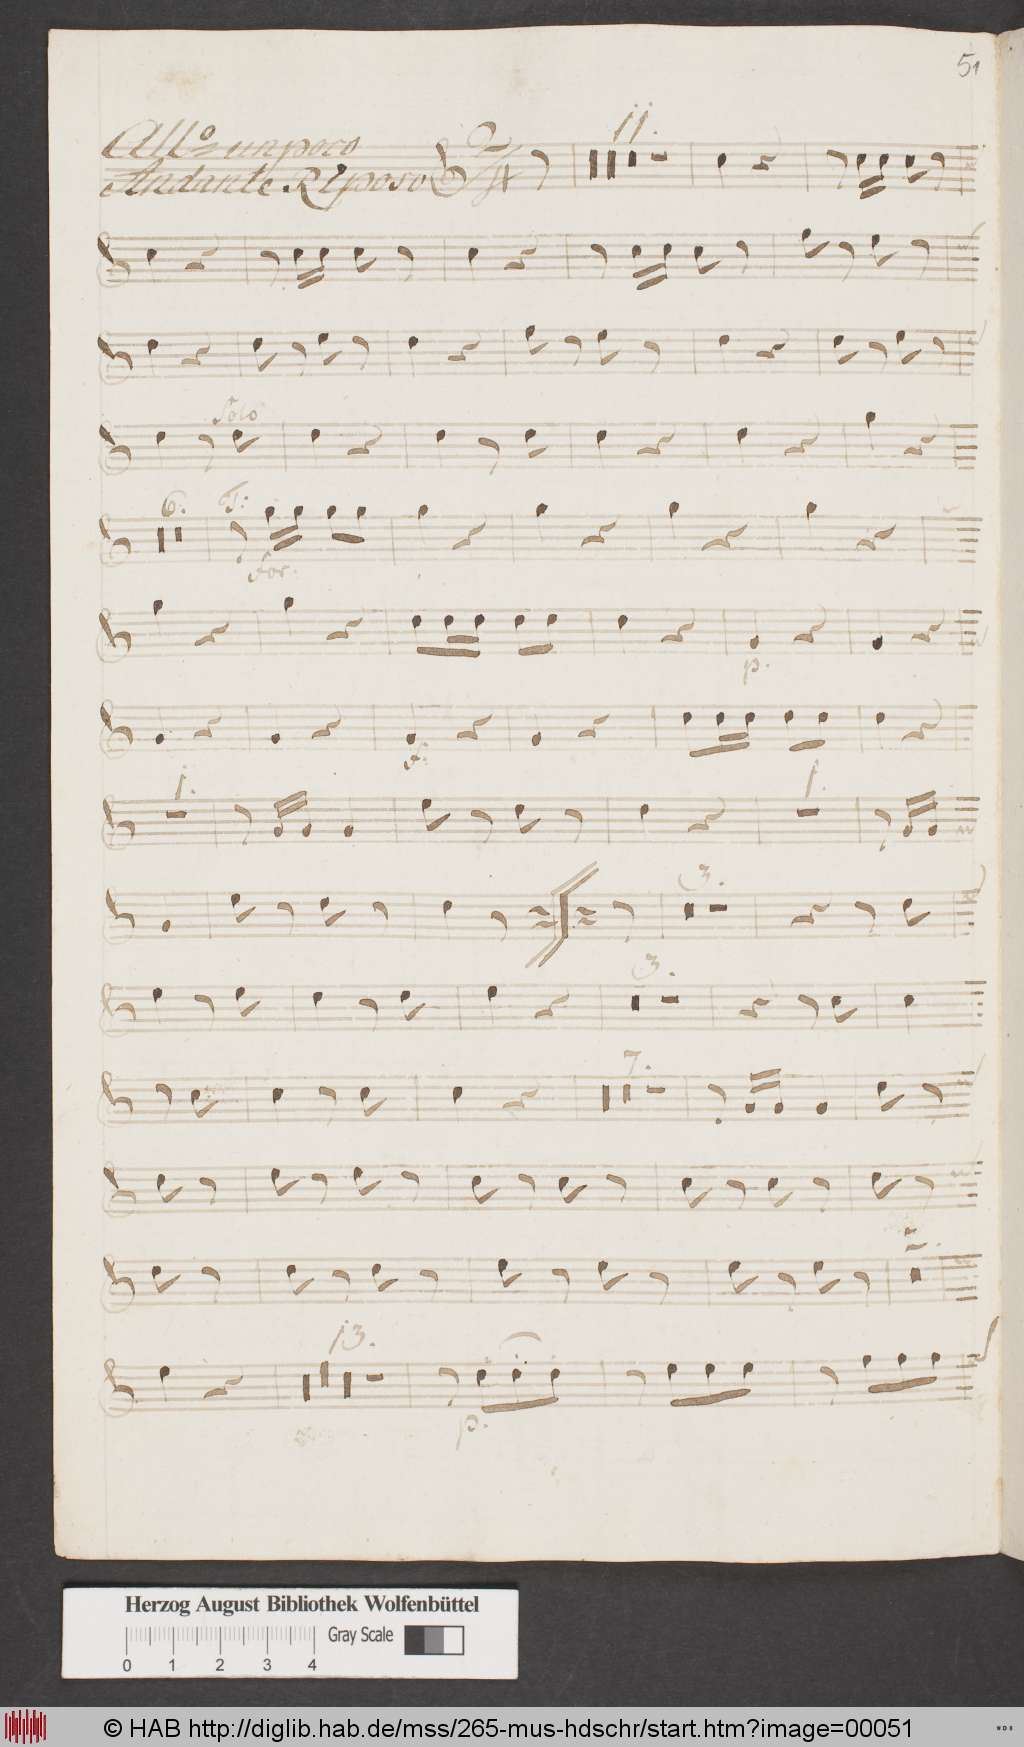 51
All.º un poco
Andante Riposo 2/4
11.
Solo
6. T:
For.
p.
f:
1. 1.
3.
3.
7.
2.
13.
p.
Herzog August Bibliothek Wolfenbüttel
Gray Scale
0 1 2 3 4
© HAB http://diglib.hab.de/mss/265-mus-hdschr/start.htm?image=00051
WDB